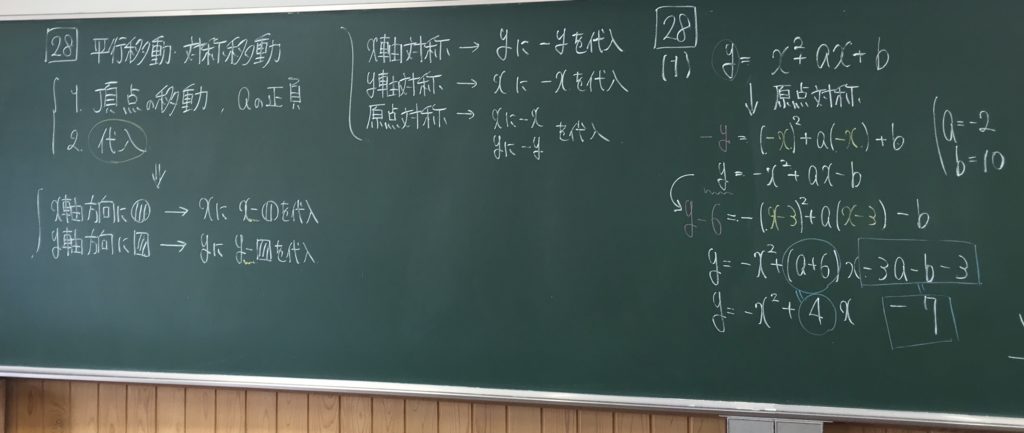 28 平行移動・対称移動
1. 頂点の移動, aの正負
2. 代入
⇓
x軸方向に○ → xに x-○を代入
y軸方向に□ → yに y-□を代入
x軸対称 → yに-yを代入
y軸対称 → xに-xを代入
原点対称 → xに-x
yに-y を代入
28
(1) y = x²+ax+b
↓ 原点対称
-y = (-x)²+a(-x)+b
y = -x²+ax-b
y-6 = -(x-3)²+a(x-3)-b
y = -x²+(a+6)x -3a-b-3
y = -x²+4x -7
a=-2
b=10